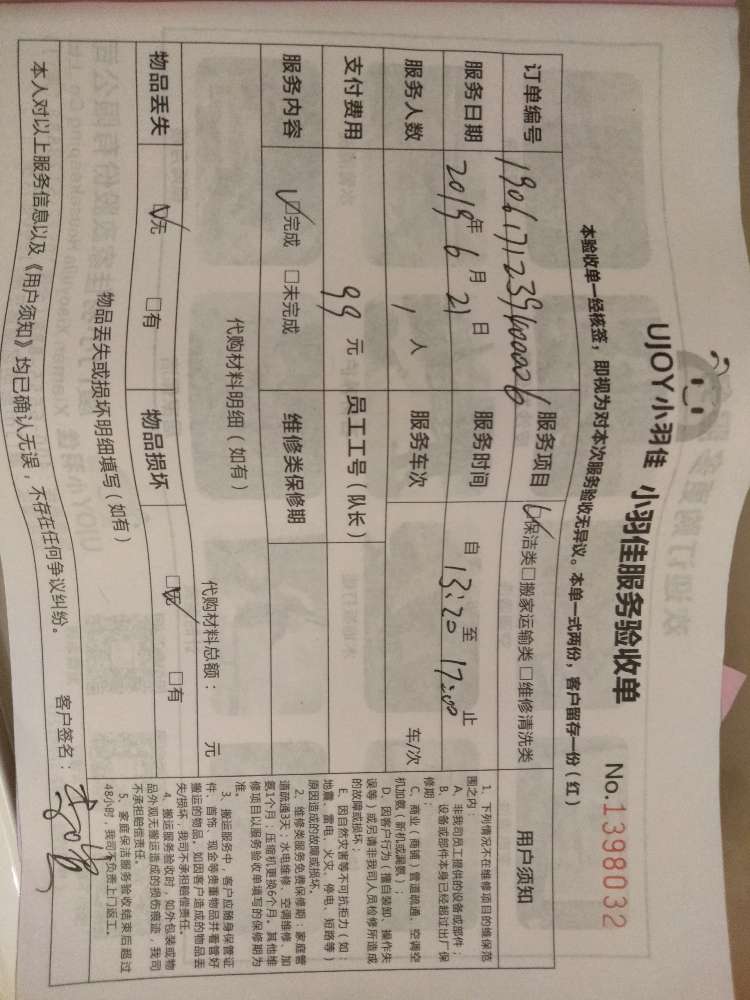 UJOY小羽佳 小羽佳服务验收单 No.1398032
本验收单一经核签，即视为对本次服务验收无异议。本单一式两份，客户留存一份（红）
订单编号 服务项目 保洁类 □搬家运输类 □维修清洗类
服务日期 2019年6月21日 服务时间 自13:20至17:20止
服务人数 1人 服务车次 车/次
支付费用 99元 员工工号（队长）
服务内容 ☑完成 □未完成 维修类保修期
代购材料明细（如有）
代购材料总额： 元
物品丢失 ☑无 □有 物品损坏 ☑无 □有
物品丢失或损坏明细填写（如有）
本人对以上服务信息以及《用户须知》均已确认无误，不存在任何争议纠纷。
客户签名：
用户须知
1、下列情况不在维修项目的维保范
围之内：
A、非我司员工提供的设备或部件；
B、设备或部件本身已经超过出厂保
修期；
C、商业（商铺）管道疏通、空调空
机加氨（新机或漏氨）；
D、因客户行为（擅自装卸、操作失
误等）或另请非我司人员检修所造成
的故障或损坏；
E、因自然灾害等不可抗拒力（如：
地震、雷电、火灾、停电、短路等）
原因造成的故障或损坏。
2、维修类服务免费保修期：家庭管
道疏通3天；水电维修、空调维修、加
氨1个月；压缩机更换6个月。其他维
修项目以服务验收单填写的保修期为
准。
3、搬运服务中，客户应随身保管证
件、首饰、现金等贵重物品并看管好
搬运的物品，如因客户造成的物品丢
失/损坏，我司不承担赔偿责任。
4、搬运服务验收时，如外包装或物
品外观无搬运造成的损伤痕迹，我司
不承担赔偿责任。
5、家庭保洁服务验收结束后超过
48小时，我司不负责上门返工。